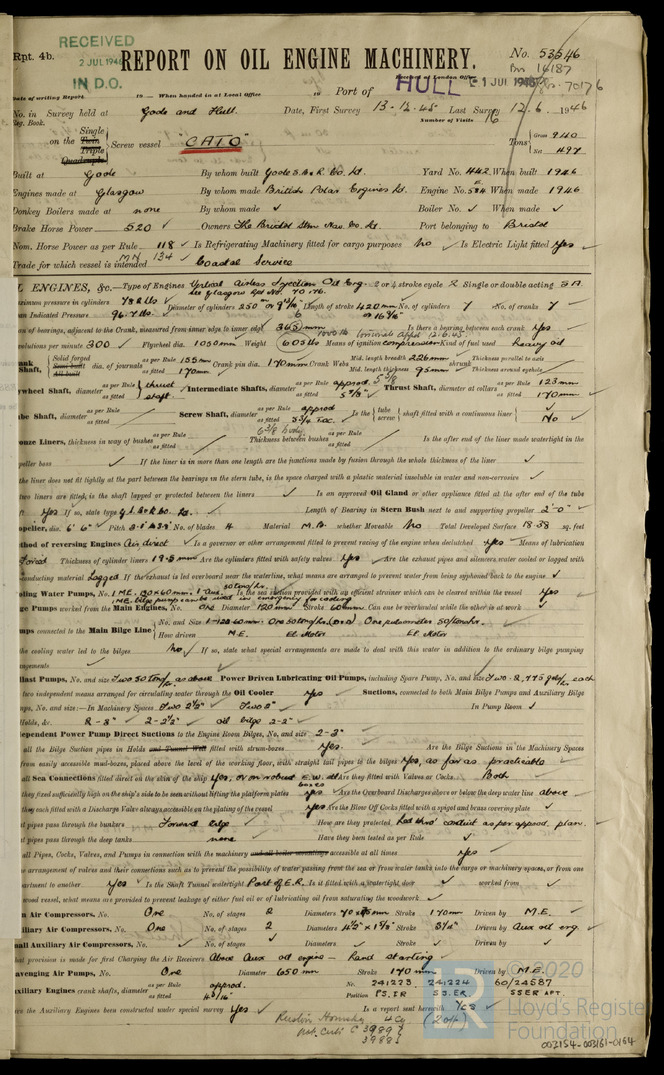 Rpt. 4b.
RECEIVED
2 JUL 1946
IN D.O.
REPORT ON OIL ENGINE MACHINERY.
No. 53546
16187
Received at London Office
Date of writing Report 19 When handed in at Local Office 19 Port of HULL 1 JUL 1946 70176
No. in Survey held at Goole and Hull. Date, First Survey 13-12-45 Last Survey 12.6.1946
Reg. Book. Number of Visits 16
Single
on the Twin Triple Quadruple Screw vessel "CATO" Tons Gross 940 Net 497
Built at Goole By whom built Goole S.B. & R. Co. Ld. Yard No. 442 When built 1946
Engines made at Glasgow By whom made British Polar Engines Ld. Engine No. 584 When made 1946
Donkey Boilers made at none By whom made Boiler No. When made
Brake Horse Power 520 Owners The Bristol Stm Nav. Co. Ld. Port belonging to Bristol
Nom. Horse Power as per Rule 118 Is Refrigerating Machinery fitted for cargo purposes No Is Electric Light fitted Yes
MN 134
Trade for which vessel is intended Coastal Service
L ENGINES, &c. Type of Engines Vertical Airless Injection Oil Eng. 2 or 4 stroke cycle 2 Single or double acting S.A.
See Glasgow Rpt No. 70176.
aximum pressure in cylinders Diameter of cylinders 250 mm Length of stroke 420 mm No. of cylinders 7 No. of cranks 7
an Indicated Pressure 96.7 lbs
an of bearings, adjacent to the Crank, measured from inner edge to inner edge 365 mm Is there a bearing between each crank Yes
volutions per minute 300 Flywheel dia. 1050 mm Weight 605 lbs Means of ignition compression Kind of fuel used heavy oil
rank Shaft, Solid forged Semi built All built dia. of journals as per Rule 155 mm as fitted 170 mm Crank pin dia. 170 mm Crank Webs Mid. length breadth 226 mm Mid. length thickness 95 mm shrunk Thickness parallel to axis Thickness around eyehole
ywheel Shaft, diameter as per Rule as fitted thrust shaft. Intermediate Shafts, diameter as per Rule approd. as fitted 5 7/8" Thrust Shaft, diameter at collars as per Rule 123 mm as fitted 170 mm
ube Shaft, diameter as per Rule as fitted Screw Shaft, diameter as per Rule approd as fitted Is the tube screw shaft fitted with a continuous liner No
onze Liners, thickness in way of bushes as per Rule as fitted Thickness between bushes as per Rule as fitted Is the after end of the liner made watertight in the
peller boss If the liner is in more than one length are the junctions made by fusion through the whole thickness of the liner
the liner does not fit tightly at the part between the bearings in the stern tube, is the space charged with a plastic material insoluble in water and non-corrosive
two liners are fitted, is the shaft lapped or protected between the liners Is an approved Oil Gland or other appliance fitted at the after end of the tube
Yes If so, state type Length of Bearing in Stern Bush next to and supporting propeller 2'-0"
opeller, dia. 6' 6" Pitch No. of blades 4 Material M.B. whether Moveable No Total Developed Surface 18.38 sq. feet
ethod of reversing Engines Air direct Is a governor or other arrangement fitted to prevent racing of the engine when declutched Yes Means of lubrication
Forced Thickness of cylinder liners 19.5 mm Are the cylinders fitted with safety valves Yes Are the exhaust pipes and silencers water cooled or lagged with
conducting material Lagged If the exhaust is led overboard near the waterline, what means are arranged to prevent water from being syphoned back to the engine
oling Water Pumps, No. 1 M.E. 90 x 60 mm. 1 Aux. 50 tons/hr. Is the sea suction provided with an efficient strainer which can be cleared within the vessel Yes
M.E. bilge pumps can be used in emergency for cooling
ge Pumps worked from the Main Engines, No. One Diameter 120 mm Stroke 60 mm Can one be overhauled while the other is at work
umps connected to the Main Bilge Line No. and Size One 50 tons/hr. One 50 tons/hr.
How driven M.E. El. Motor El. Motor
the cooling water led to the bilges No If so, state what special arrangements are made to deal with this water in addition to the ordinary bilge pumping
rangements
llast Pumps, No. and size Two 50 tons/hr as above Power Driven Lubricating Oil Pumps, including Spare Pump, No. and size Two each
two independent means arranged for circulating water through the Oil Cooler Yes Suctions, connected to both Main Bilge Pumps and Auxiliary Bilge
mps, No. and size:— In Machinery Spaces Two 2½" Two 2" In Pump Room
Holds, &c. 2-3" 2-2½" oil bilge 2-2"
ependent Power Pump Direct Suctions to the Engine Room Bilges, No. and size 2-3"
all the Bilge Suction pipes in Holds and Tunnel Well fitted with strum-boxes Yes. Are the Bilge Suctions in the Machinery Spaces
from easily accessible mud-boxes, placed above the level of the working floor, with straight tail pipes to the bilges Yes, as far as practicable
all Sea Connections fitted direct on the skin of the ship Yes, or on robust E.W. st boxes Are they fitted with Valves or Cocks Both
they fixed sufficiently high on the ship's side to be seen without lifting the platform plates Yes Are the Overboard Discharges above or below the deep water line above
they each fitted with a Discharge Valve always accessible on the plating of the vessel Yes Are the Blow Off Cocks fitted with a spigot and brass covering plate
t pipes pass through the bunkers Forward bilge How are they protected led thro' conduit as per approd. plan.
t pipes pass through the deep tanks none Have they been tested as per Rule
all Pipes, Cocks, Valves, and Pumps in connection with the machinery and all boiler mountings accessible at all times Yes
e arrangement of valves and their connections such as to prevent the possibility of water passing from the sea or from water tanks into the cargo or machinery spaces, or from one
partment to another Yes Is the Shaft Tunnel watertight Part of E.R. Is it fitted with a watertight door worked from
wood vessel, what means are provided to prevent leakage of either fuel oil or of lubricating oil from saturating the woodwork
n Air Compressors, No. One No. of stages 2 Diameters Stroke 170 mm Driven by M.E.
iliary Air Compressors, No. One No. of stages 2 Diameters 4½" x 1⅞" Stroke 3¼" Driven by Aux oil eng.
all Auxiliary Air Compressors, No. No. of stages Diameters Stroke Driven by
hat provision is made for first Charging the Air Receivers Above Aux oil engine — hand starting
avenging Air Pumps, No. One Diameter 650 mm Stroke 170 mm Driven by M.E.
uxiliary Engines crank shafts, diameter as per Rule approd. as fitted No. 241223 241224 60/24587
Position PS. ER SS. ER. SSER AFT.
re the Auxiliary Engines been constructed under special survey Yes Is a report sent herewith Yes
Ruston Hornsby 4 Cy (2 off)
C 39897
39881
© 2020
Lloyd's Register
Foundation
003154-003161-0164